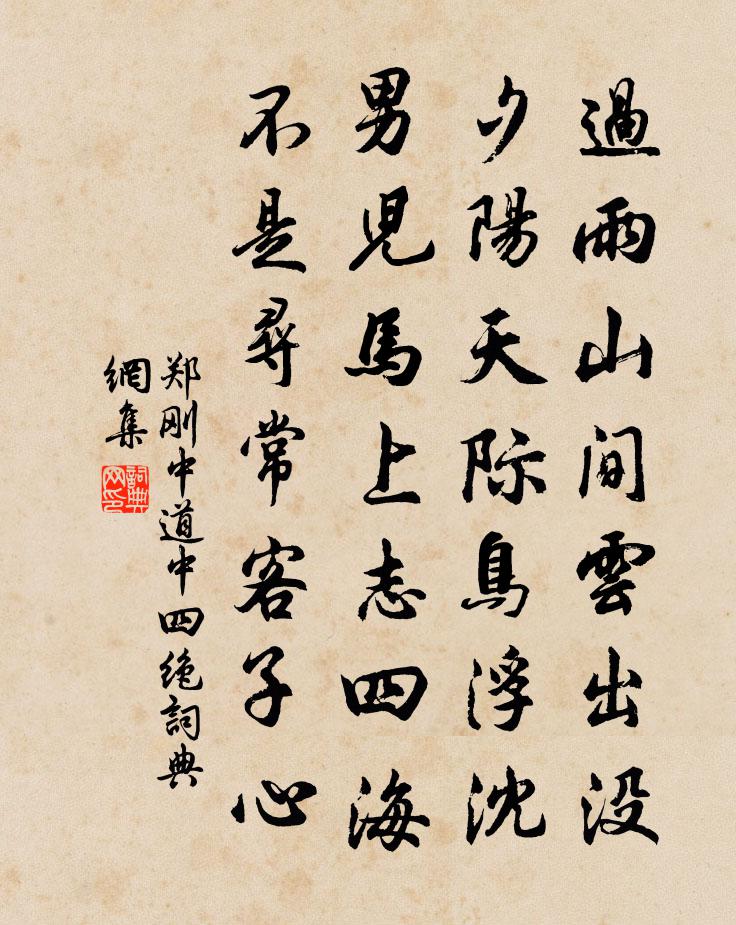 過雨山間雲出没
夕陽天际鳥浮沈
男児馬上志四海
不是尋常客子心
郑刚中道中四绝詞典
網集
詞典
网印